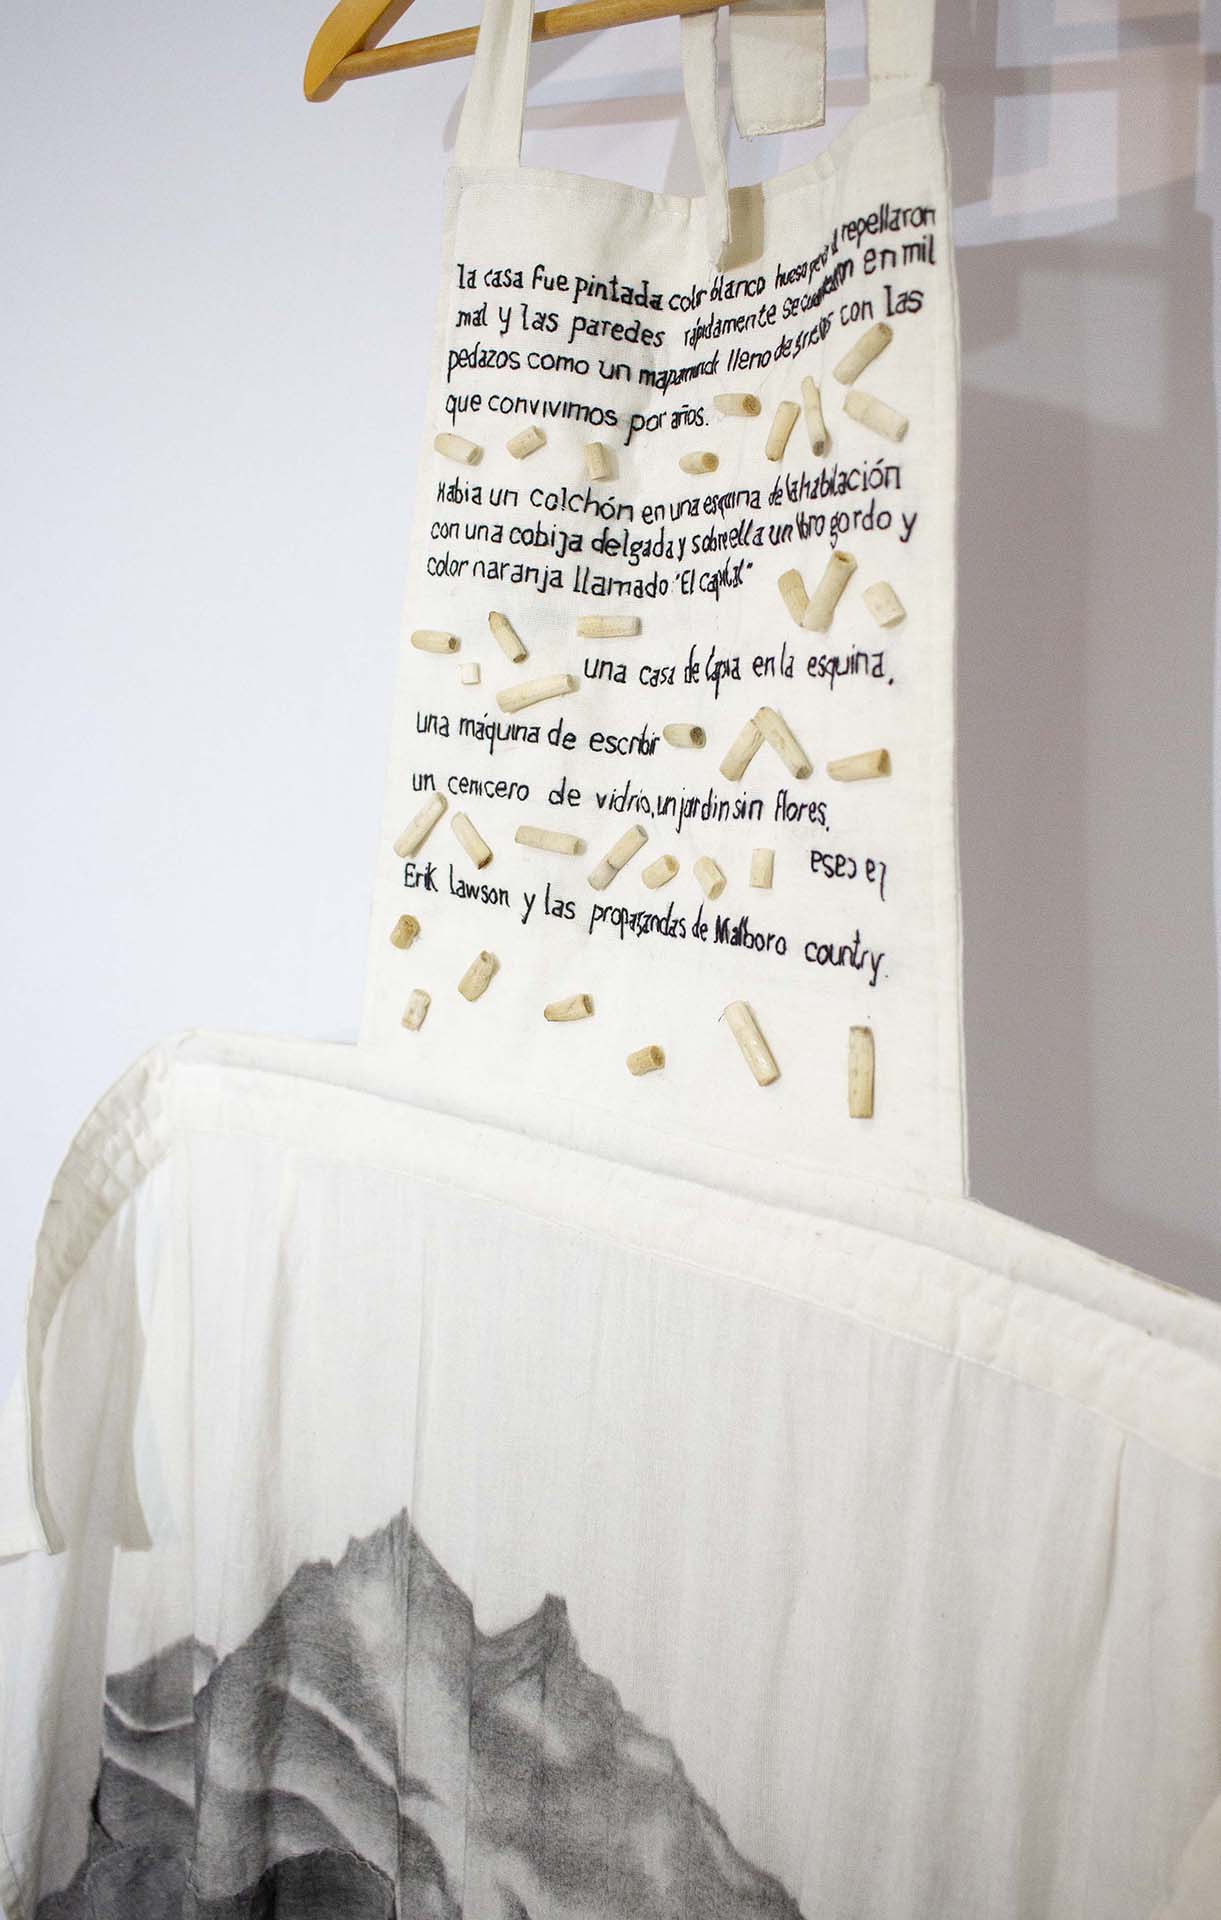 la casa fue pintada color blanco hueso pero la repellaron
mal y las paredes rápidamente se cuartearon en mil
pedazos como un mapamundi lleno de grietas con las
que convivimos por años.
Habia un colchón en una esquina de la habitación
con una cobija delgada y sobre ella un libro gordo y
color naranja llamado "El capital"
una casa de tapia en la esquina.
una máquina de escribir
un cenicero de vidrio, un jardin sin flores.
la casa
Erik Lawson y las propagandas de Malboro country.